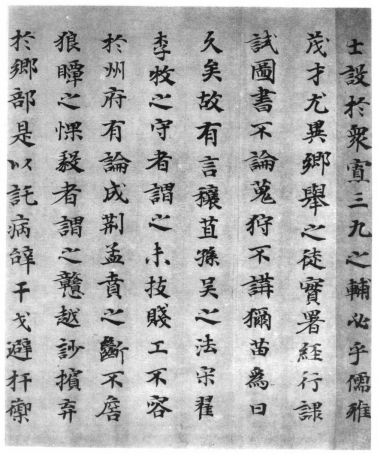 士設於衆賓三九之輔必乎儒雅
茂才尤異鄉舉之徒實署經行課
試圖書不論蒐狩不講獮苗爲日
久矣故有言穰苴孫吳之法宋翟
李牧之守者謂之末技賤工不容
於州府有論成荊孟賁之斷不詹
狼瞫之慓毅者謂之戇越訬擯弃
於鄉部是以託病辝干戈避扞禦